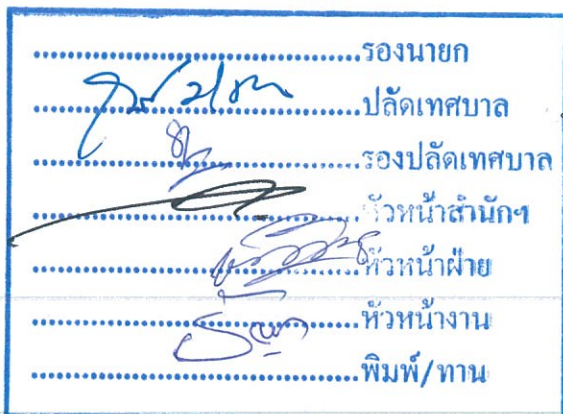 ....................................รองนายก
....................................ปลัดเทศบาล
....................................รองปลัดเทศบาล
....................................หัวหน้าสำนักฯ
....................................หัวหน้าฝ่าย
....................................หัวหน้างาน
....................................พิมพ์/ทาน